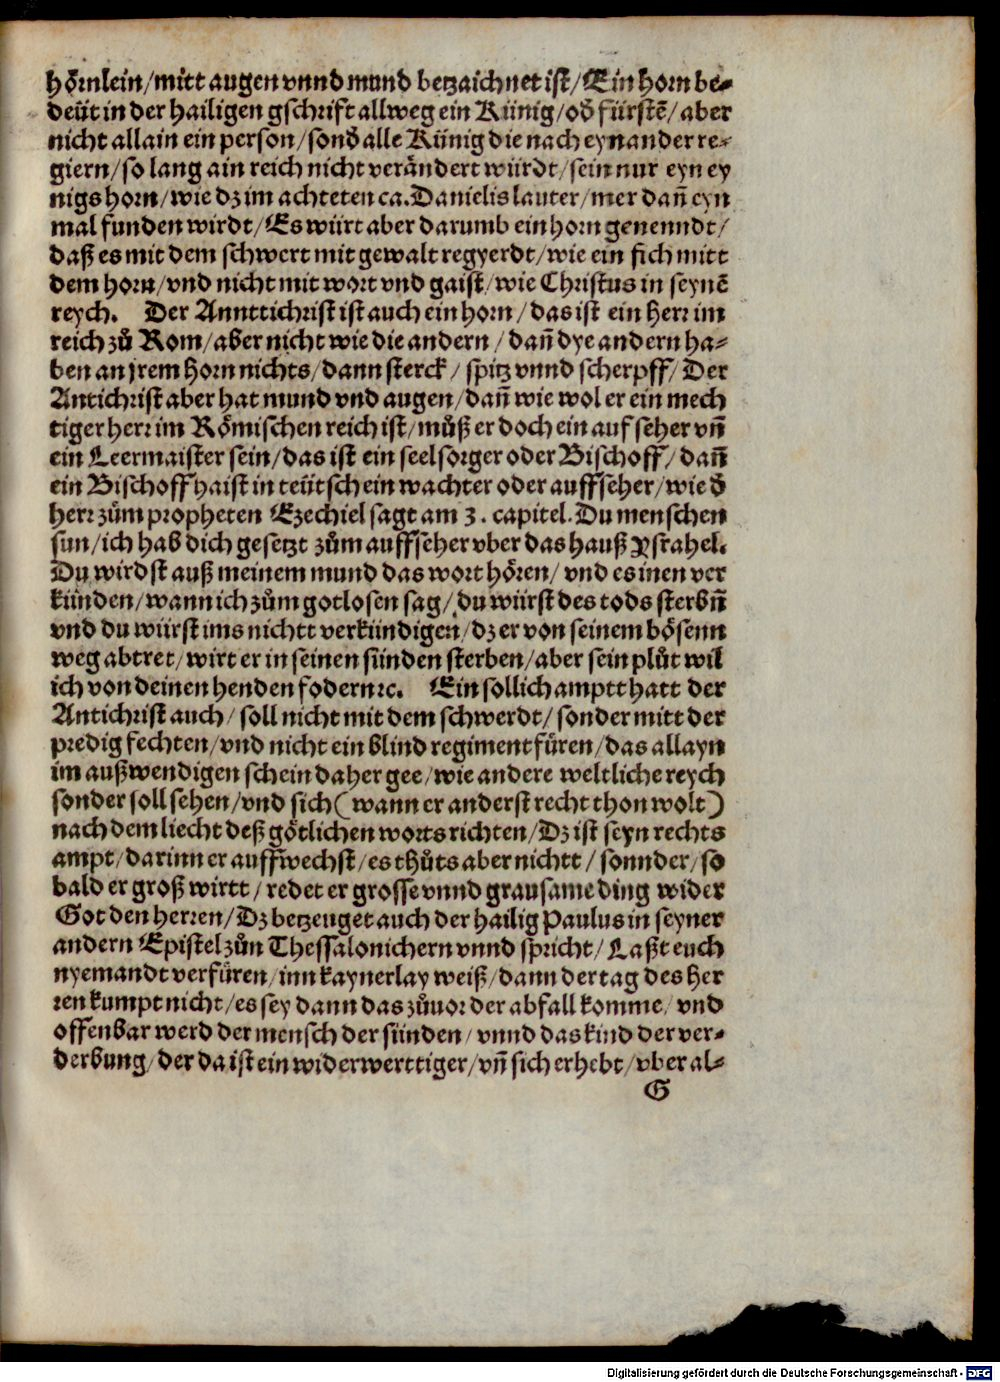 hoͤrnlein/mitt augen vnnd mund betzaichnet ist/Ein horn be-
deüt in der hailigen gschrift allweg ein Künig/od̄ fürstē/aber
nicht allain ein person/sond̄ alle Künig die nach eynander re-
giern/so lang ain reich nicht veraͤndert würdt/sein nur eyn ey
nigs horn/wie dz im achteten ca. Danielis lauter/mer dañ eyn
mal funden wirdt/Es würt aber darumb ein horn genenndt/
daß es mit dem schwert mit gewalt regyerdt/wie ein fich mitt
dem horn/vnd nicht mit wort vnd gaist/wie Christus in seynē
reych. Der Annttichrist ist auch ein horn/das ist ein herr im
reich zuͦ Rom/aber nicht wie die andern/dañ dye andern ha-
ben an jrem horn nichts/dann sterck/spitz vnnd scherpff/Der
Antichrist aber hat mund vnd augen/dañ wie wol er ein mech
tiger herr im Roͤmischen reich ist/muͦß er doch ein auf seher vñ
ein Leermaister sein/das ist ein seelsorger oder Bischoff/dañ
ein Bischoff haist in teütsch ein wachter oder auffseher/wie d̄
herr zuͦm propheten Ezechiel sagt am 3. capitel. Du menschen
sun/ich hab dich gesetzt zuͦm auffseher vber das hauß Ysrahel.
Du wirdst auß meinem mund das wort hoͤren/vnd es inen ver
künden/wann ich zuͦm gotlosen sag/du würst des tods sterbñ
vnd du würst ims nichtt verkündigen/dz er von seinem boͤsenn
weg abtret/wirt er in seinen sünden sterben/aber sein pluͦt wil
ich von deinen henden fodern ꝛc. Ein sollich amptt hatt der
Antichrist auch/soll nicht mit dem schwerdt/sonder mitt der
predig fechten/vnd nicht ein blind regiment fuͤren/das allayn
im außwendigen schein daher gee/wie andere weltliche reych
sonder soll sehen/vnd sich (wann er anderst recht thon wolt)
nach dem liecht deß goͤtlichen worts richten/Dz ist seyn rechts
ampt/darinn er auffwechst/es thuͦts aber nichtt/sonnder/so
bald er groß wirtt/redet er grosse vnnd grausame ding wider
Got den herren/Dz betzeuget auch der hailig Paulus in seyner
andern Epistel zuͦn Thessalonichern vnnd spricht/Laßt euch
nyemandt verfuͤren/inn kaynerlay weiß/dann der tag des her
ren kumpt nicht/es sey dann das zuͦuor der abfall komme/vnd
offenbar werd der mensch der sünden/vnnd das kind der ver-
derbung/der da ist ein widerwerttiger/vñ sich erhebt/vber al-
G
Digitalisierung gefördert durch die Deutsche Forschungsgemeinschaft - DFG